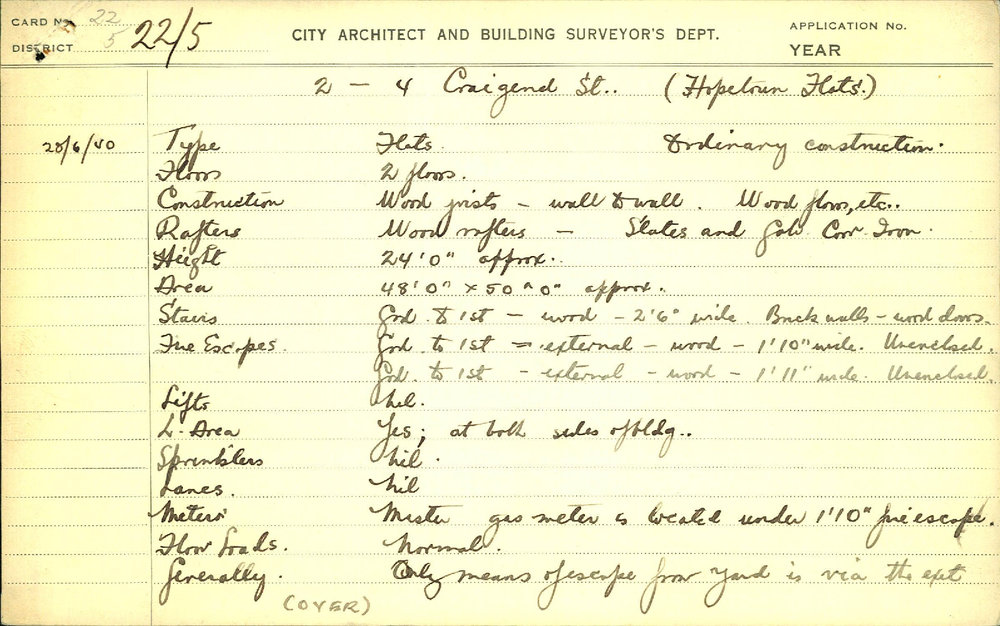 CARD No. 22
DISTRICT 5
22/5
CITY ARCHITECT AND BUILDING SURVEYOR'S DEPT.
APPLICATION No.
YEAR
2 — 4 Craigend St.. (Hopetoun Flats.)
28/6/40 Type Flats. Ordinary construction.
Floors 2 floors.
Construction Wood joists - wall to wall. Wood floors, etc..
Rafters Wood rafters — Slates and Galv. Corr. Iron.
Height 24'0" approx..
Area 48'0" x 50'0" approx.
Stairs Grd. to 1st - wood - 2'6" wide. Brick walls - wood doors.
Fire Escapes. Grd. to 1st - external - wood - 1'10" wide. Unenclsed.
Grd. to 1st - external - wood - 1'11" wide. Unenclsed.
Lifts Nil.
L. Area Yes; at both sides of bldg..
Sprinklers Nil.
Lanes. Nil
Meters Master gas meter is located under 1'10" fire escape.
Floor Loads. Normal.
Generally. Only means of escape from yard is via the exit
(OVER)